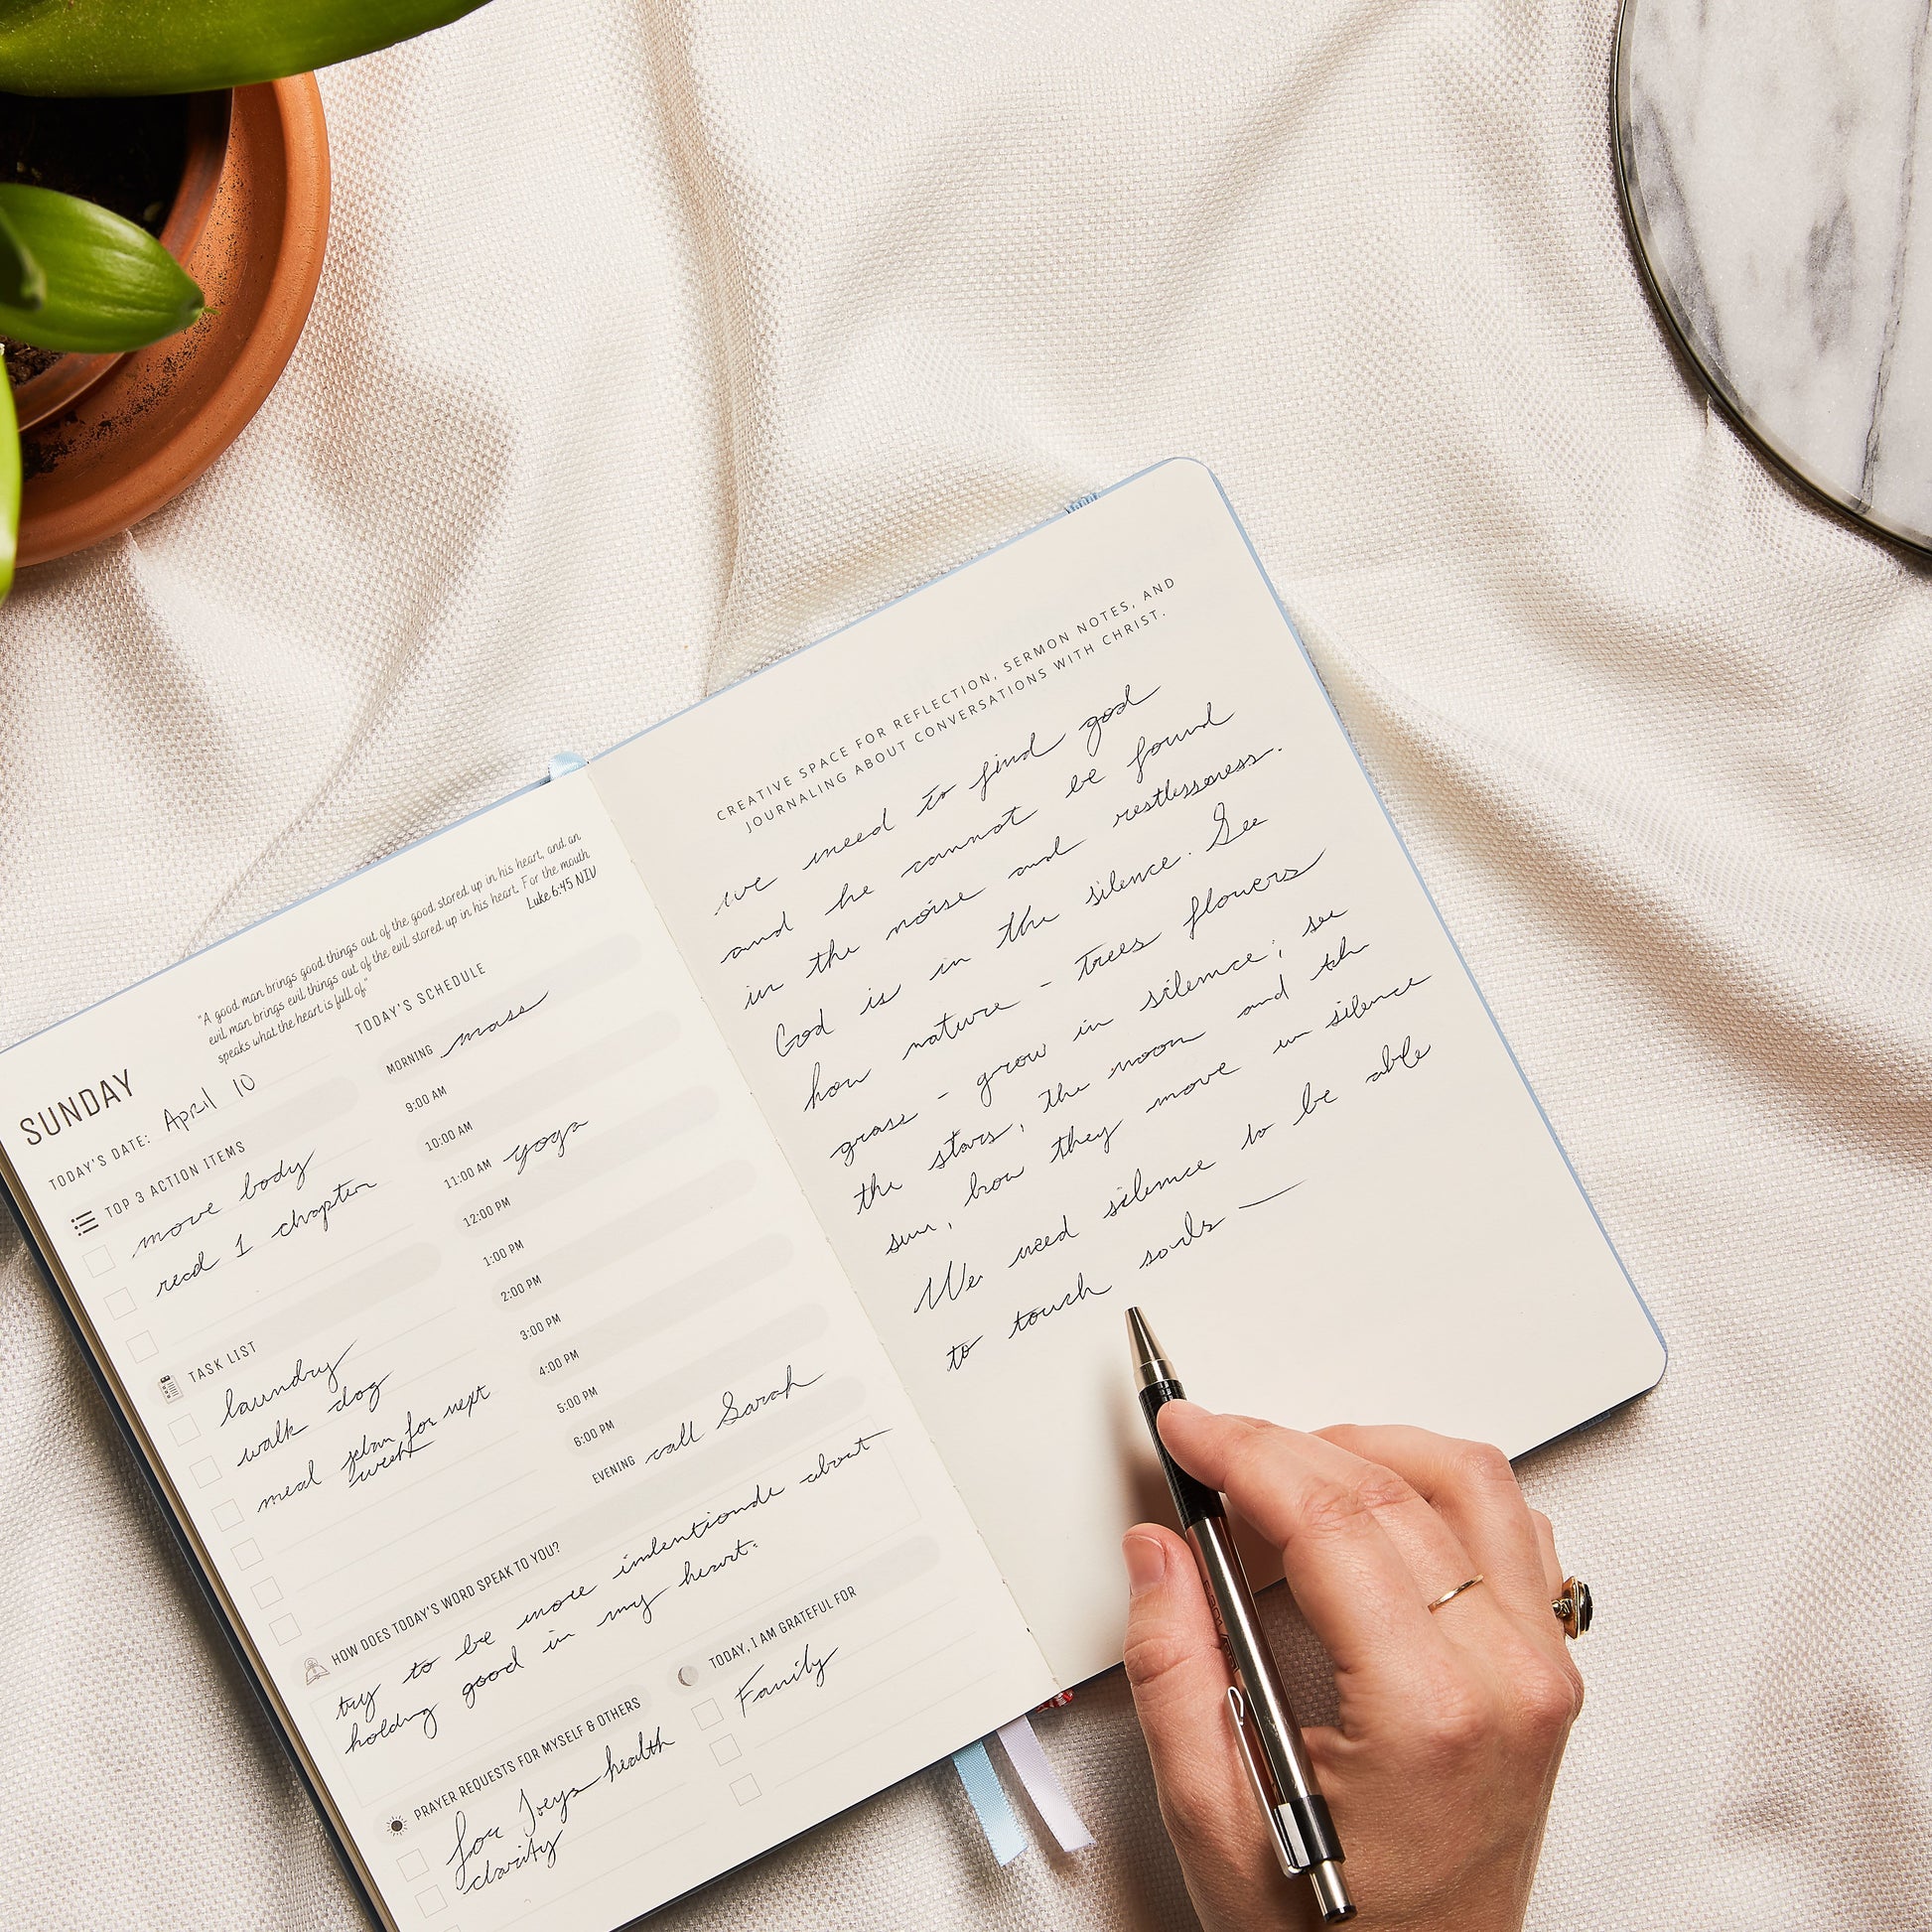 "A good man brings good things out of the good stored up in his heart, and an
evil man brings evil things out of the evil stored up in his heart. For the mouth
speaks what the heart is full of."
Luke 6:45 NIV
SUNDAY
TODAY'S DATE: April 10
TOP 3 ACTION ITEMS
move body
read 1 chapter
TASK LIST
laundry
walk dog
meal plan for next
week
TODAY'S SCHEDULE
MORNING mass
9:00 AM
10:00 AM
11:00 AM yoga
12:00 PM
1:00 PM
2:00 PM
3:00 PM
4:00 PM
5:00 PM
6:00 PM
EVENING call Sarah
HOW DOES TODAY'S WORD SPEAK TO YOU?
try to be more intentionale about
holding good in my heart.
PRAYER REQUESTS FOR MYSELF & OTHERS
for Joeys health
clarity
TODAY, I AM GRATEFUL FOR
Family
CREATIVE SPACE FOR REFLECTION, SERMON NOTES, AND
JOURNALING ABOUT CONVERSATIONS WITH CHRIST.
we need to find god
and he cannot be found
in the noise and restlessness.
God is in the silence. See
how nature - trees flowers
grass - grow in silence; see
the stars, the moon and th
sun, how they move in silence
We need silence to be able
to touch souls —